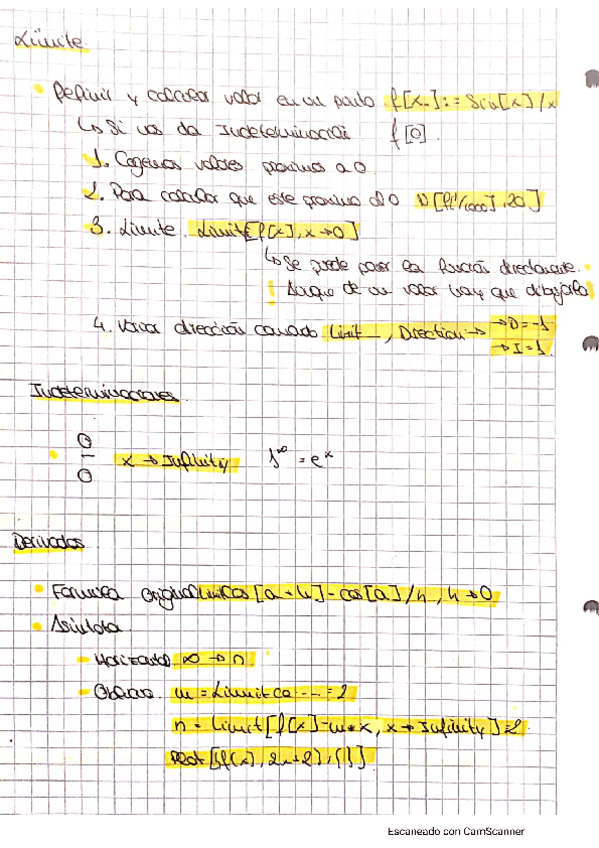 Límite
• Definir y calcular valor en un punto f[x_]:= Sin[x]/x
↳ Si nos da Indeterminación f[0].
1. Cogemos valores proximos a 0
2. Para calcular que este proximo al 0 N[f[1/1000],20]
3. Límite. Limit[f[x],x→0]
↳ Se puede poner la función directamente.
! Aunque de un valor hay que dibujarla
4. Variar dirección comando Limit__, Direction→ →D=-1
→I=1
Indeterminaciones
0/0 x→Infinity 1^∞ = e^x
Derivadas
• Formula original Limit Cos[a+h]-cos[a]/h, h→0
• Asintota
- Horizontal ∞→n
- Oblicua m=Limit --=2
n=Limit[f[x]-m*x, x→Infinity]=2
Plot[{f(x), 2x+2},{}]
Escaneado con CamScanner